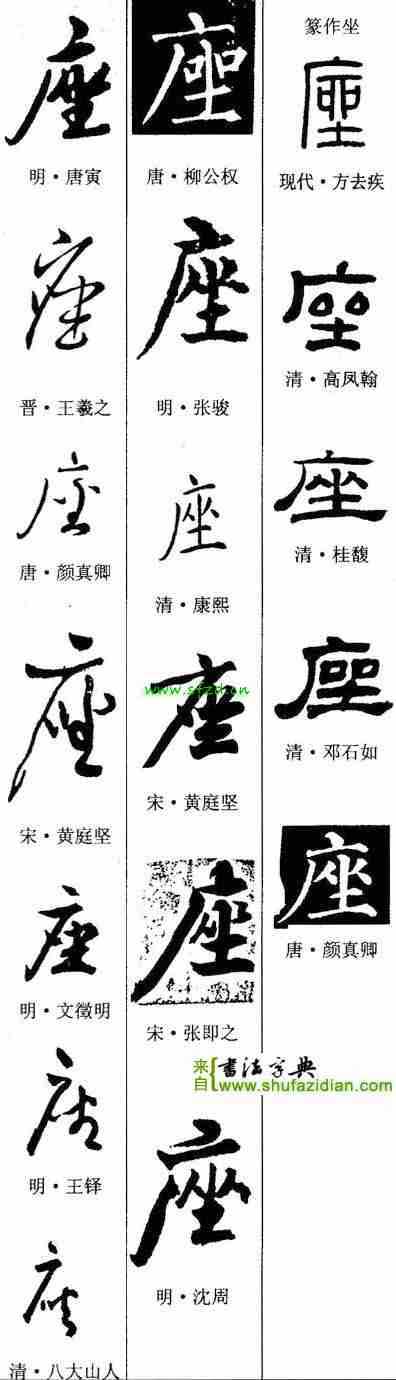 篆作坐
座
现代·方去疾
座
清·高凤翰
座
清·桂馥
座
清·邓石如
座
唐·颜真卿
座
唐·柳公权
座
明·张骏
座
清·康熙
座
宋·黄庭坚
座
宋·张即之
座
明·沈周
座
明·唐寅
座
晋·王羲之
座
唐·颜真卿
座
宋·黄庭坚
座
明·文徵明
座
明·王铎
座
清·八大山人
www.sfzd.cn
来自 书法字典
www.shufazidian.com